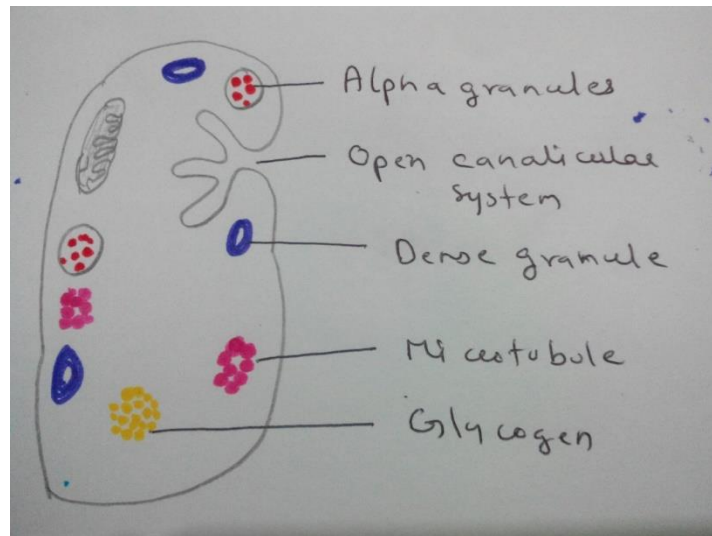 Alpha granules
Open canalicular
system
Dense granule
Microtubule
Glycogen